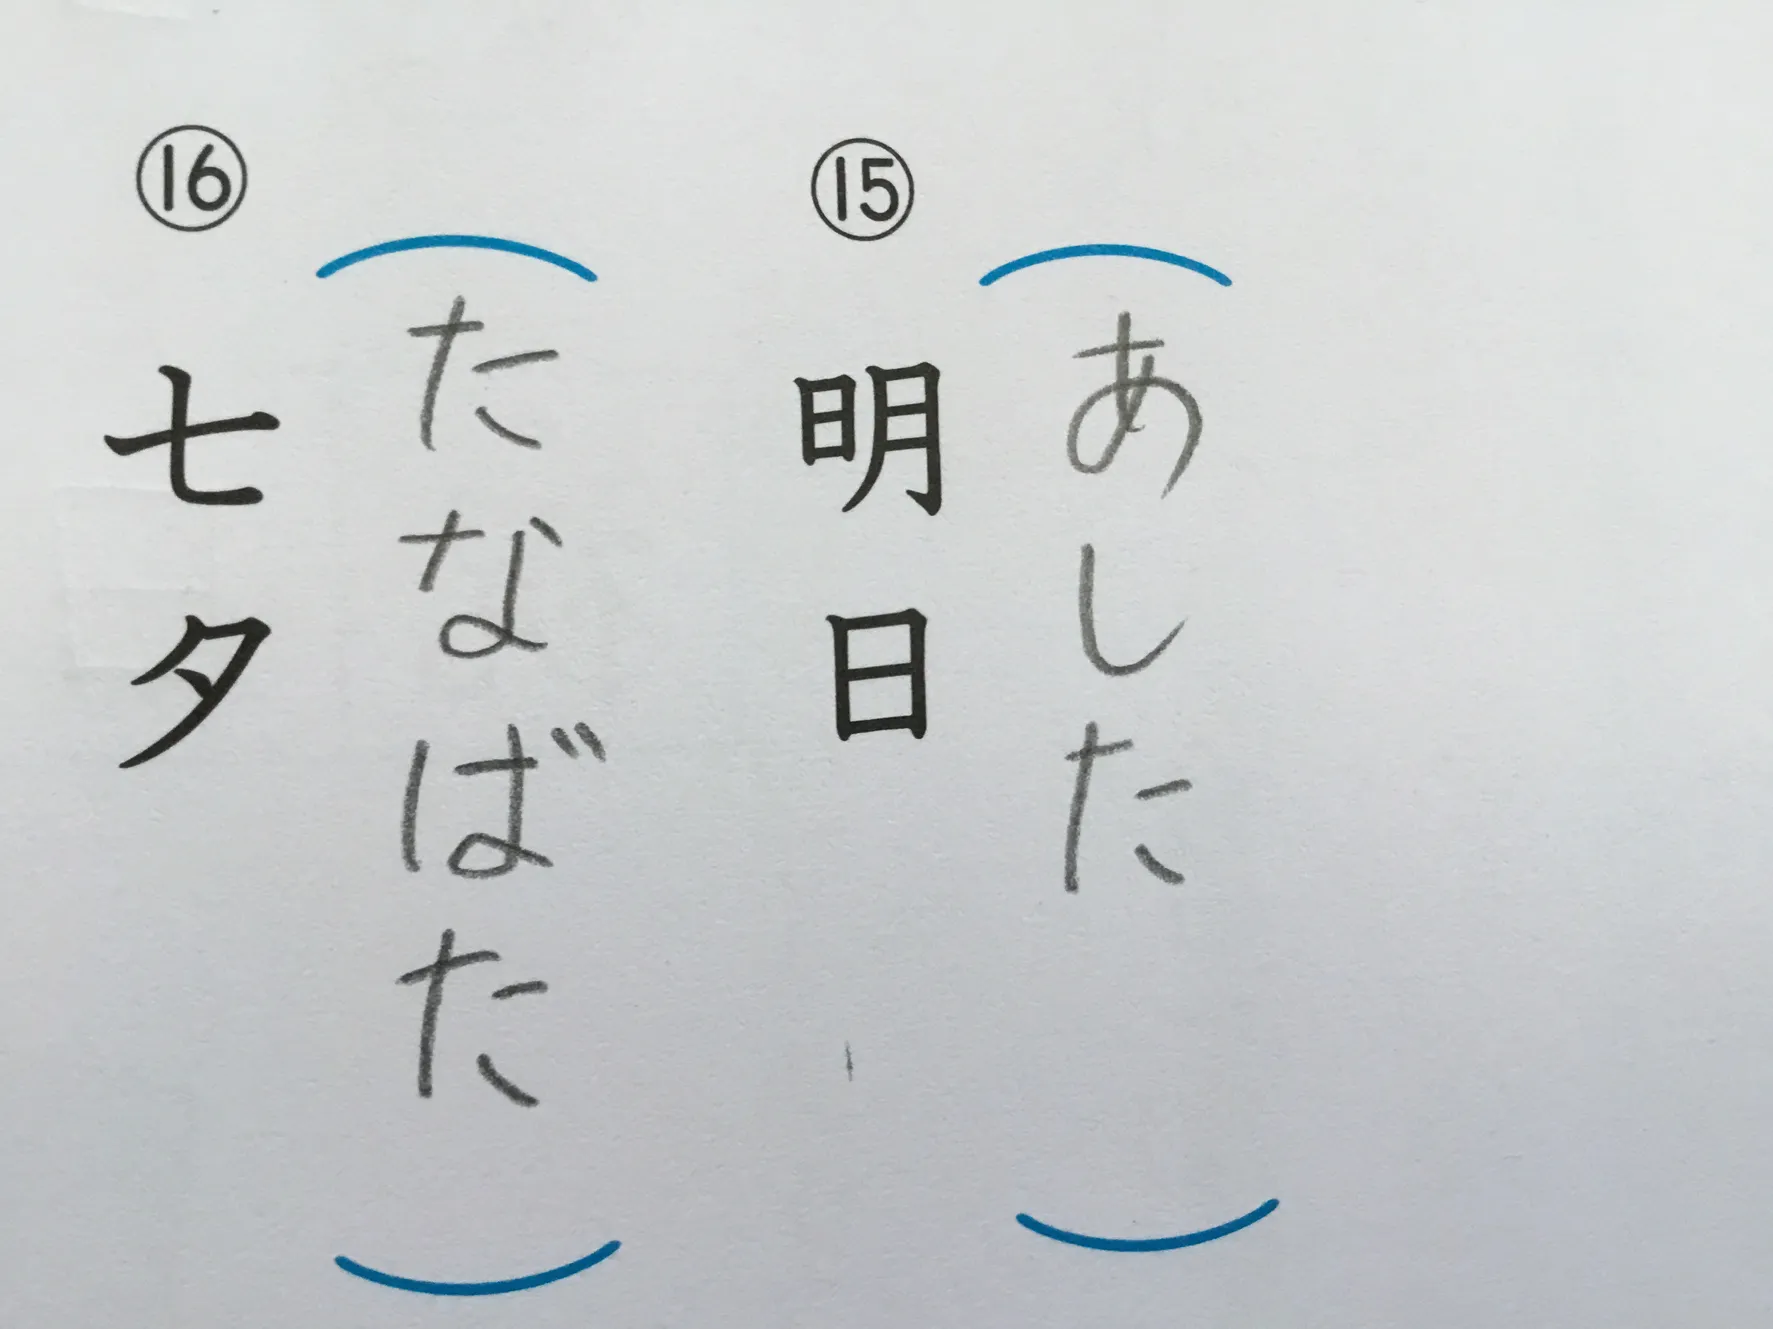 ⑮
明日
（あした）
⑯
七夕
（たなばた）